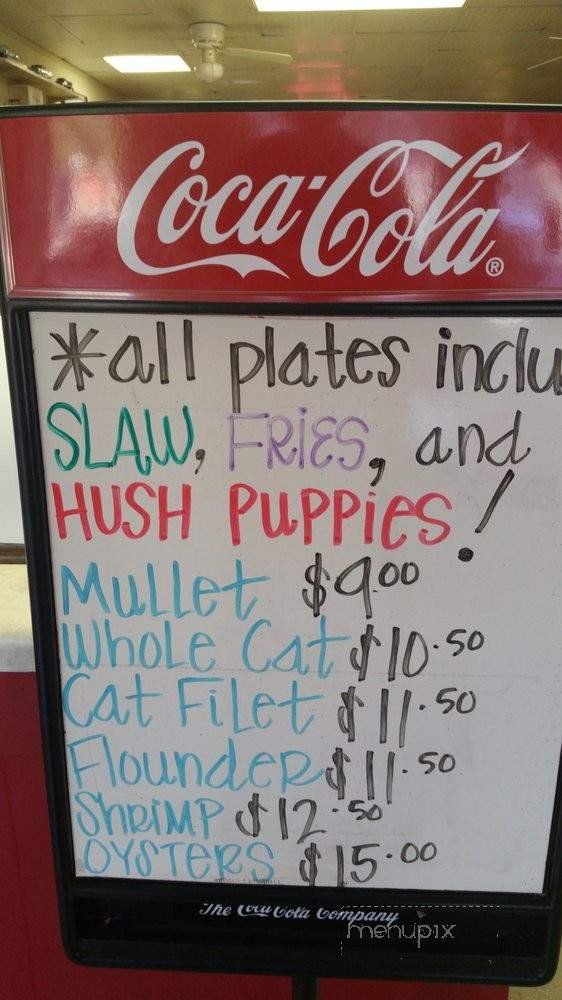 Coca-Cola®
*all plates inclu
SLAW, FRiES, and
HUSH PuPPiES!
MuLLet $9.00
WhoLe Cat $10.50
Cat FiLet $11.50
FLoundeR $11.50
ShRiMP $12.50
OYSTERS $15.00
The Coca-Cola Company
menupix